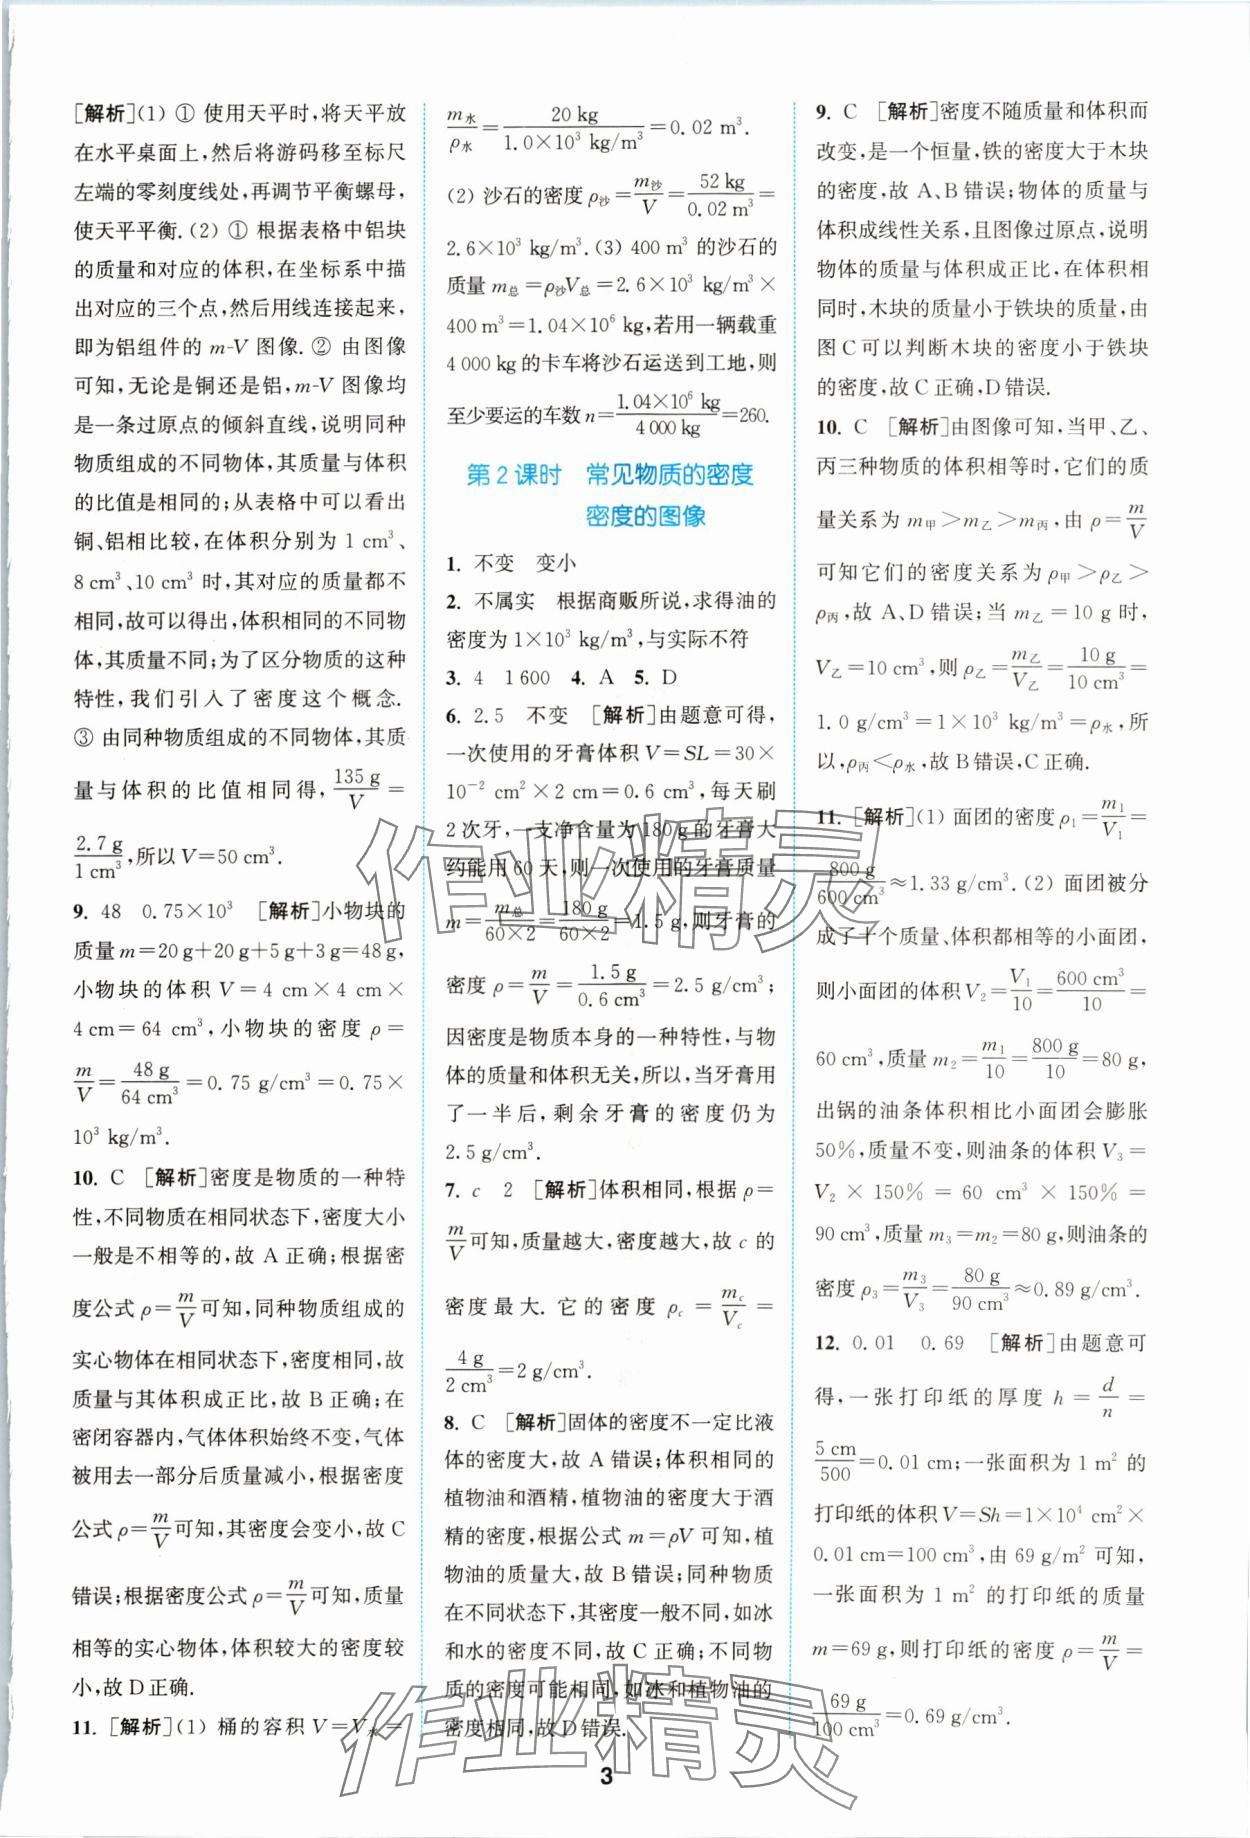 [解析](1) ① 使用天平时,将天平放
在水平桌面上,然后将游码移至标尺
左端的零刻度线处,再调节平衡螺母,
使天平平衡.(2) ① 根据表格中铝块
的质量和对应的体积,在坐标系中描
出对应的三个点,然后用线连接起来,
即为铝组件的 m-V 图像.② 由图像
可知,无论是铜还是铝,m-V 图像均
是一条过原点的倾斜直线,说明同种
物质组成的不同物体,其质量与体积
的比值是相同的;从表格中可以看出
铜、铝相比较,在体积分别为 1 cm³、
8 cm³、10 cm³ 时,其对应的质量都不
相同,故可以得出,体积相同的不同物
体,其质量不同;为了区分物质的这种
特性,我们引入了密度这个概念.
③ 由同种物质组成的不同物体,其质
量与体积的比值相同得,135 g/V=
2.7 g/1 cm³,所以 V=50 cm³.
9. 48 0.75×10³ [解析]小物块的
质量 m=20 g+20 g+5 g+3 g=48 g,
小物块的体积 V=4 cm×4 cm×
4 cm=64 cm³,小物块的密度 ρ=
m/V=48 g/64 cm³=0.75 g/cm³=0.75×
10³ kg/m³.
10. C [解析]密度是物质的一种特
性,不同物质在相同状态下,密度大小
一般是不相等的,故 A 正确;根据密
度公式 ρ=m/V可知,同种物质组成的
实心物体在相同状态下,密度相同,故
质量与其体积成正比,故 B 正确;在
密闭容器内,气体体积始终不变,气体
被用去一部分后质量减小,根据密度
公式 ρ=m/V可知,其密度会变小,故 C
错误;根据密度公式 ρ=m/V可知,质量
相等的实心物体,体积较大的密度较
小,故 D 正确.
11. [解析](1) 桶的容积 V=V水=
m水/ρ水=20 kg/1.0×10³ kg/m³=0.02 m³.
(2) 沙石的密度 ρ沙=m沙/V=52 kg/0.02 m³=
2.6×10³ kg/m³.(3) 400 m³ 的沙石的
质量 m总=ρ沙V总=2.6×10³ kg/m³×
400 m³=1.04×10⁶ kg,若用一辆载重
4 000 kg的卡车将沙石运送到工地,则
至少要运的车数 n=1.04×10⁶ kg/4 000 kg=260.
第 2 课时 常见物质的密度
密度的图像
1. 不变 变小
2. 不属实 根据商贩所说,求得油的
密度为 1×10³ kg/m³,与实际不符
3. 4 1 600 4. A 5. D
6. 2.5 不变 [解析]由题意可得,
一次使用的牙膏体积 V=SL=30×
10⁻² cm²×2 cm=0.6 cm³,每天刷
2 次牙,一支净含量为 180 g 的牙膏大
约能用 60 天,则一次使用的牙膏质量
m=m总/60×2=180 g/60×2=1.5 g,则牙膏的
密度 ρ=m/V=1.5 g/0.6 cm³=2.5 g/cm³;
因密度是物质本身的一种特性,与物
体的质量和体积无关,所以,当牙膏用
了一半后,剩余牙膏的密度仍为
2.5 g/cm³.
7. c 2 [解析]体积相同,根据 ρ=
m/V可知,质量越大,密度越大,故 c 的
密度最大. 它的密度 ρc=mc/Vc=
4 g/2 cm³=2 g/cm³.
8. C [解析]固体的密度不一定比液
体的密度大,故 A 错误;体积相同的
植物油和酒精,植物油的密度大于酒
精的密度,根据公式 m=ρV 可知,植
物油的质量大,故 B 错误;同种物质
在不同状态下,其密度一般不同,如冰
和水的密度不同,故 C 正确;不同物
质的密度可能相同,如冰和植物油的
密度相同,故 D 错误.
9. C [解析]密度不随质量和体积而
改变,是一个恒量,铁的密度大于木块
的密度,故 A、B 错误;物体的质量与
体积成线性关系,且图像过原点,说明
物体的质量与体积成正比,在体积相
同时,木块的质量小于铁块的质量,由
图 C 可以判断木块的密度小于铁块
的密度,故 C 正确,D 错误.
10. C [解析]由图像可知,当甲、乙、
丙三种物质的体积相等时,它们的质
量关系为 m甲>m乙>m丙,由 ρ=m/V
可知它们的密度关系为 ρ甲>ρ乙>
ρ丙,故 A、D 错误;当 m乙=10 g 时,
V乙=10 cm³,则 ρ乙=m乙/V乙=10 g/10 cm³=
1.0 g/cm³=1×10³ kg/m³=ρ水,所
以,ρ丙<ρ水,故 B 错误,C 正确.
11. [解析](1) 面团的密度 ρ₁=m₁/V₁=
800 g/600 cm³≈1.33 g/cm³.(2) 面团被分
成了十个质量、体积都相等的小面团,
则小面团的体积 V₂=V₁/10=600 cm³/10=
60 cm³,质量 m₂=m₁/10=800 g/10=80 g,
出锅的油条体积相比小面团会膨胀
50%,质量不变,则油条的体积 V₃=
V₂×150%=60 cm³×150%=
90 cm³,质量 m₃=m₂=80 g,则油条的
密度 ρ₃=m₃/V₃=80 g/90 cm³≈0.89 g/cm³.
12. 0.01 0.69 [解析]由题意可
得,一张打印纸的厚度 h=d/n=
5 cm/500=0.01 cm;一张面积为 1 m² 的
打印纸的体积 V=Sh=1×10⁴ cm²×
0.01 cm=100 cm³,由 69 g/m² 可知,
一张面积为 1 m² 的打印纸的质量
m=69 g,则打印纸的密度 ρ=m/V=
69 g/100 cm³=0.69 g/cm³.
作业精灵
作业精灵
3